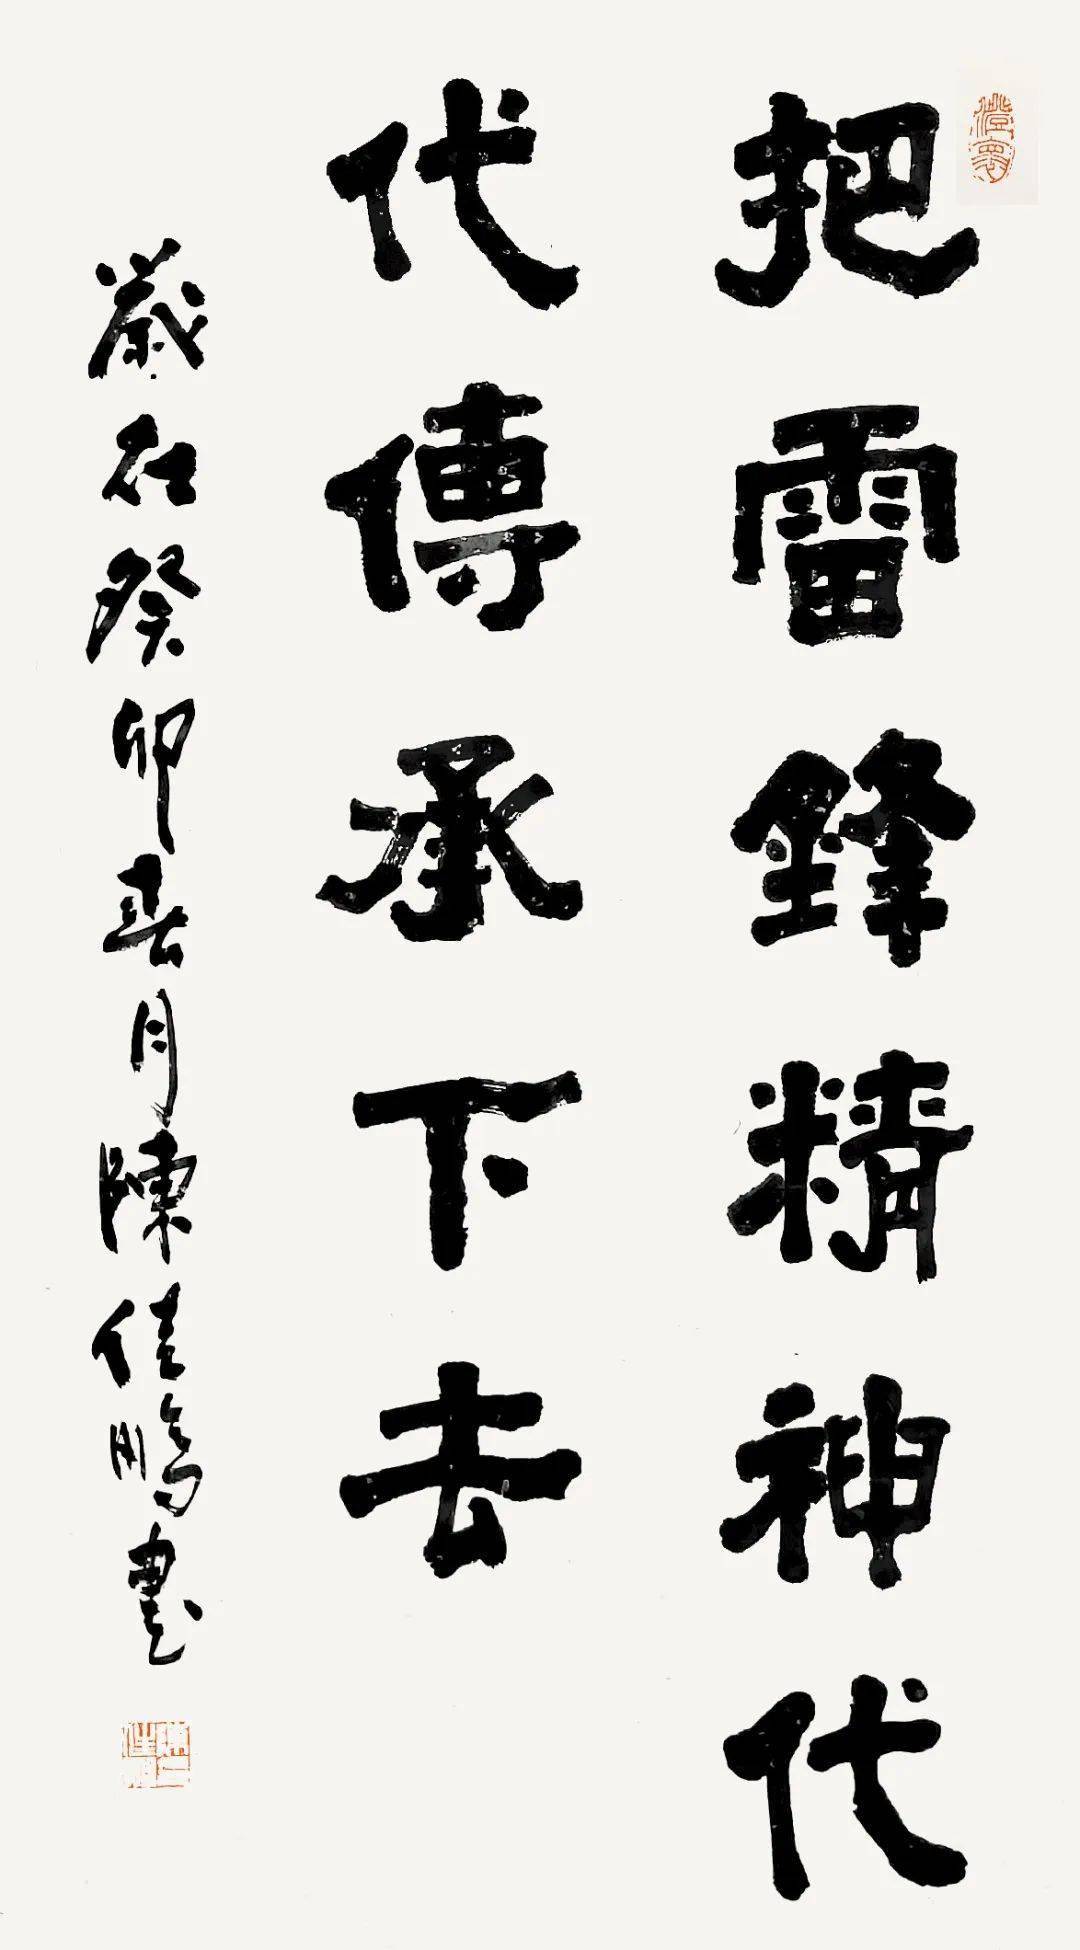 把雷鋒精神代
代傳承下去
歲在癸卯春月陳佳鵬書
澄懷